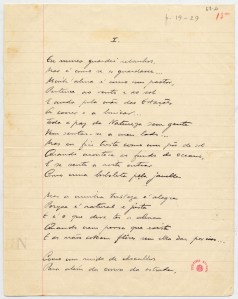 15
I
Eu nunca guardei rebanhos,
Mas é como se os guardasse...
Minha alma é como um pastor,
Conhece o vento e o sol
E anda pela mão das Estações
A seguir e a
Toda a paz da Natureza sem gente
Vem sentar-se a meu lado
Mas eu fico triste como um pôr de sol
Quando no fundo
E se sente a noite entrada
Como uma borboleta pela janella.
Mas a minha tristeza é
Porque é natural e justa
E é o que deve na alma
Quando já pensa que existe
E as mãos colhem flores sem ella dar por isso.
Como um ruido de chocalhos
Para além da curva da estrada,